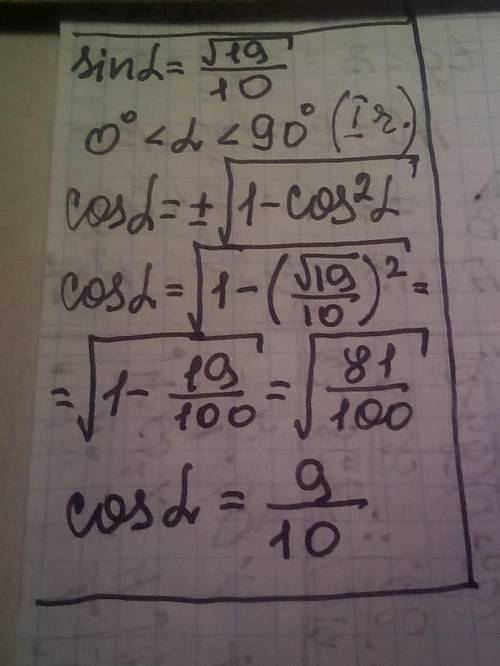 sinα = √19/10
0° < α < 90° (I г.)
cosα = ± √(1 - cos²α)
cosα = √(1 - (√19/10)²) =
= √(1 - 19/100) = √(81/100)
cosα = 9/10